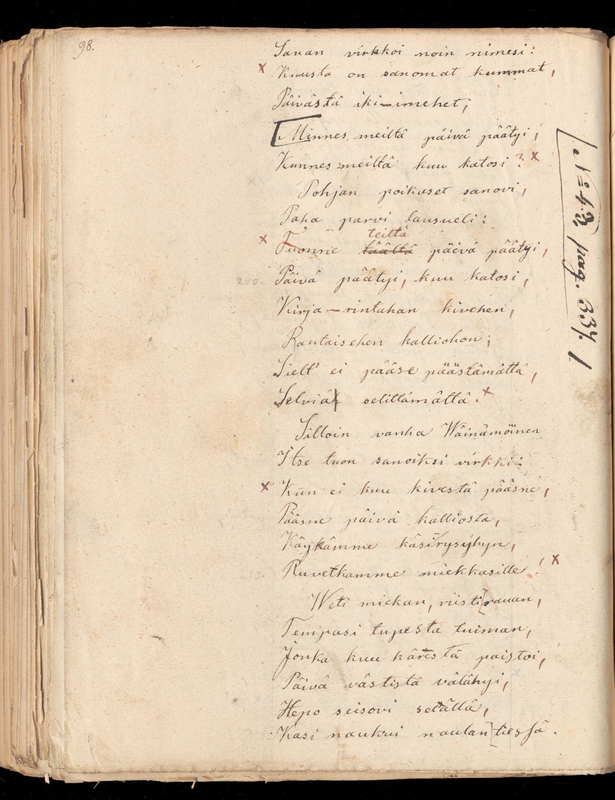 98.
Sanan virkkoi noin nimesi:
x Kuusta on sanomat kummat,
Päivästä iki-imehet;
[Minnes meiltä päivä päätyi,
Kunnes meiltä kuu katosi? x
Pohjan poikaset sanovi,
Paha parvi lausueli:
teiltä
x Tuonne täältä päivä päätyi,
Päivä päätyi, kuu katosi,
Kirja-rintahan kivehen,
Rautaisehen kalliohon;
Sielt' ei pääse päästämättä,
Selviä selittämättä. x
Silloin vanha Wäinämöinen
Itse tuon sanoiksi virkki:
x Kun ei kuu kivestä pääsne,
Pääsne päivä kalliosta,
Käykämme käsirysyhyn,
Ruvetkamme miekkasille! x
Weti miekan, riisti]rauan,
Tempasi tupesta tuiman,
Jonka kuu kärestä paistoi,
Päivä västistä välähyi,
Hepo seisovi selällä,
Kasi naukui naulan]tiessä.
[№ 43 pag. 337.]